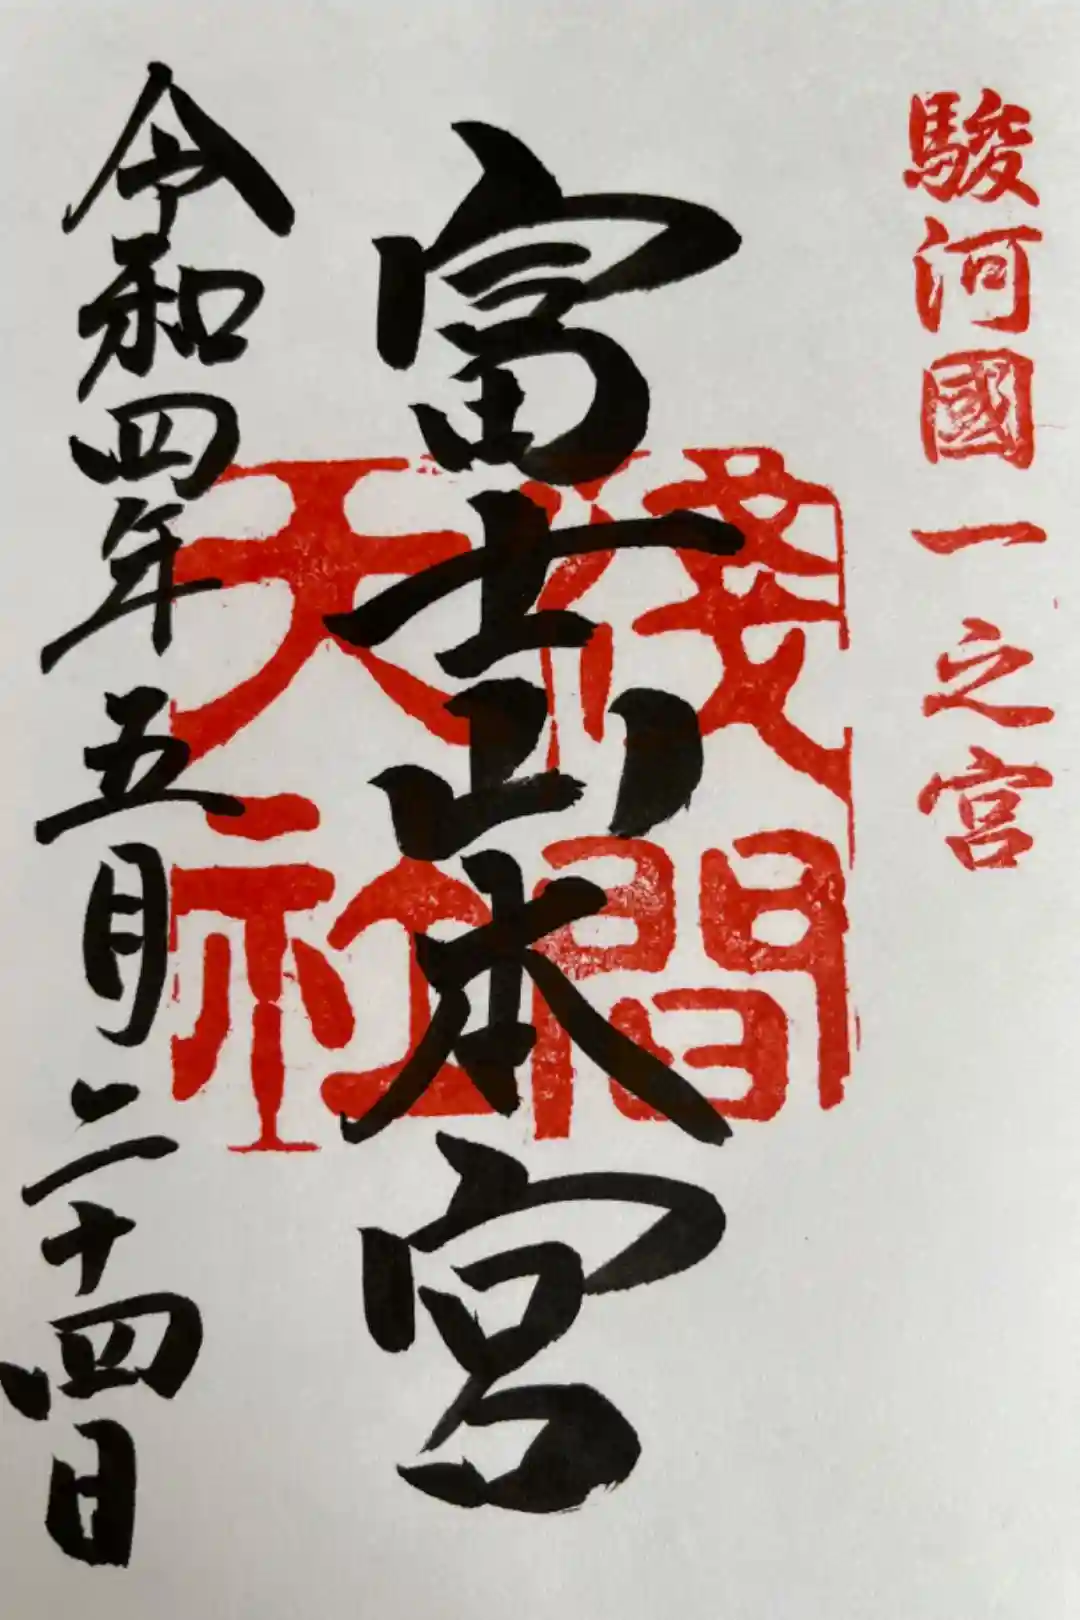 駿河國一之宮
富士山本宮
淺間
天社
令和四年五月二十四日